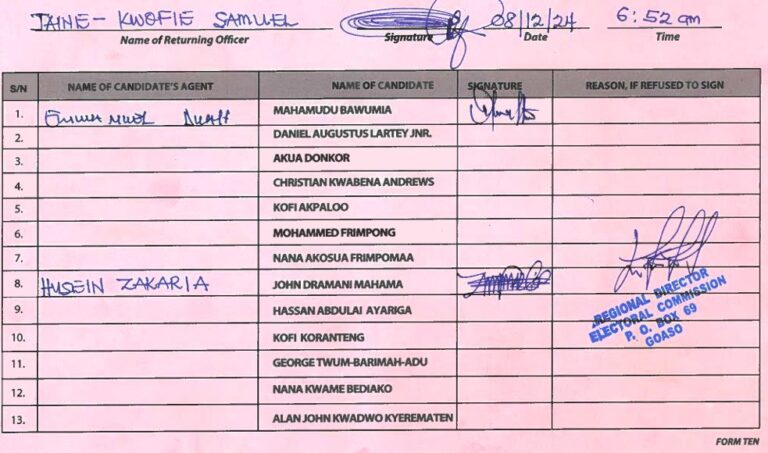 TAINE-KWOFIE SAMUEL 08/12/24 6:52am
Name of Returning Officer Signature Date Time
S/N NAME OF CANDIDATE'S AGENT NAME OF CANDIDATE SIGNATURE REASON, IF REFUSED TO SIGN
1. Emmanuel MAHAMUDU BAWUMIA
2. DANIEL AUGUSTUS LARTEY JNR.
3. AKUA DONKOR
4. CHRISTIAN KWABENA ANDREWS
5. KOFI AKPALOO
6. MOHAMMED FRIMPONG
7. NANA AKOSUA FRIMPOMAA
8. HUSEIN ZAKARIA JOHN DRAMANI MAHAMA
9. HASSAN ABDULAI AYARIGA
10. KOFI KORANTENG
11. GEORGE TWUM-BARIMAH-ADU
12. NANA KWAME BEDIAKO
13. ALAN JOHN KWADWO KYEREMATEN
REGIONAL DIRECTOR
ELECTORAL COMMISSION
P. O. BOX 69
GOASO
FORM TEN